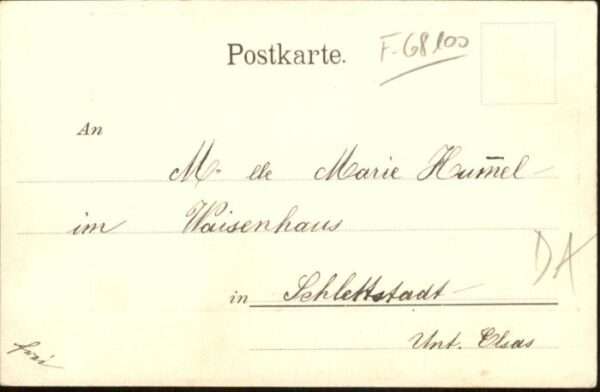 Postkarte.
F-68100
An
M. lle Marie Hum̅el
im Waisenhaus
in Schlettstadt
Unt. Elsas
DA
frei